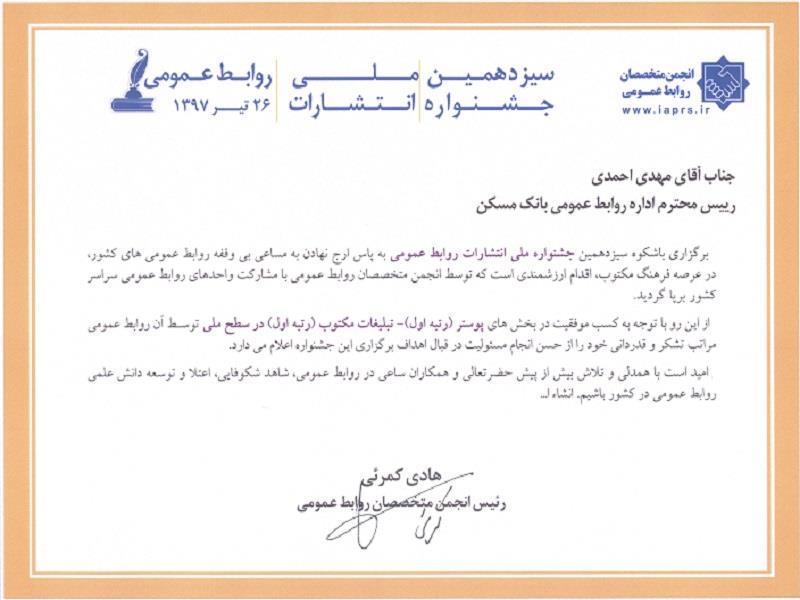 انجمن متخصصان
روابط عمومی
www.iaprs.ir
سیزدهمین ملی روابط عمومی
جشنواره انتشارات ۲۶ تیر ۱۳۹۷
جناب آقای مهدی احمدی
رییس محترم اداره روابط عمومی بانک مسکن
برگزاری باشکوه سیزدهمین جشنواره ملی انتشارات روابط عمومی به پاس ارج نهادن به مساعی بی وقفه روابط عمومی های کشور،
در عرصه فرهنگ مکتوب، اقدام ارزشمندی است که توسط انجمن متخصصان روابط عمومی با مشارکت واحدهای روابط عمومی سراسر
کشور برپا گردید.
از این رو با توجه به کسب موفقیت در بخش های پوستر (رتبه اول)- تبلیغات مکتوب (رتبه اول) در سطح ملی توسط آن روابط عمومی
مراتب تشکر و قدردانی خود را از حسن انجام مسئولیت در قبال اهداف برگزاری این جشنواره اعلام می دارد.
امید است با همدلی و تلاش بیش از پیش حضرتعالی و همکاران ساعی در روابط عمومی، شاهد شکوفایی، اعتلا و توسعه دانش علمی
روابط عمومی در کشور باشیم. انشاء ا...
هادی کمرئی
رئیس انجمن متخصصان روابط عمومی